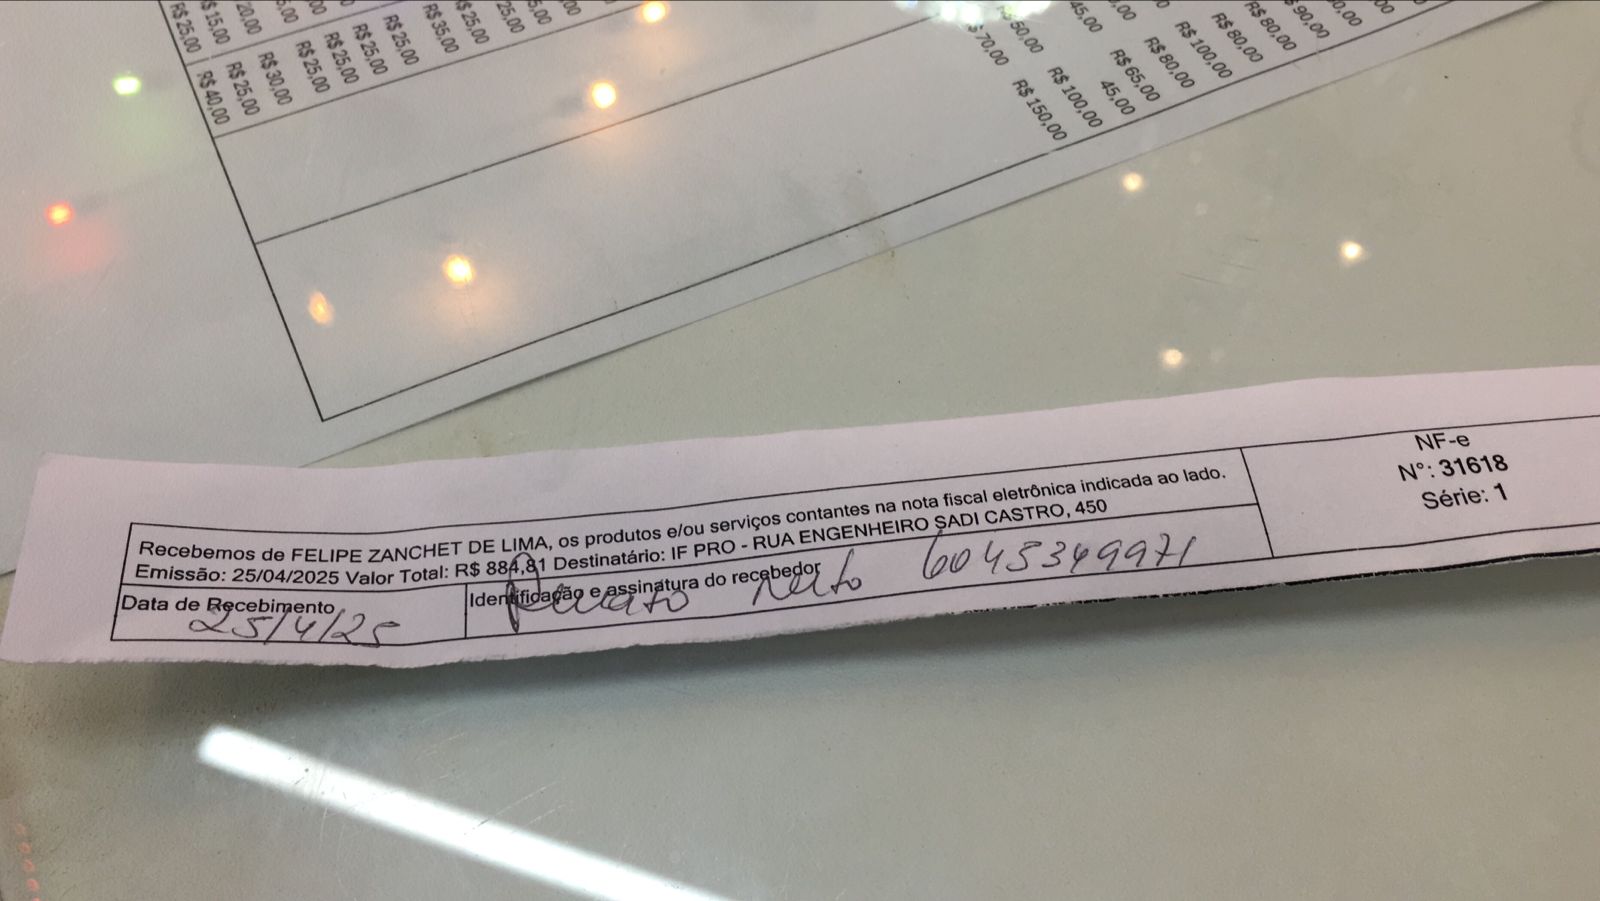 R$ 25,00
R$ 15,00
R$ 40,00
R$ 25,00
R$ 30,00
R$ 25,00
R$ 25,00
R$ 25,00
R$ 25,00
R$ 35,00
R$ 25,00
R$ 70,00
R$ 150,00
R$ 50,00
R$ 100,00
45,00
45,00
R$ 65,00
R$ 80,00
R$ 100,00
R$ 80,00
R$ 80,00
R$ 90,00
Recebemos de FELIPE ZANCHET DE LIMA, os produtos e/ou serviços contantes na nota fiscal eletrônica indicada ao lado.
Emissão: 25/04/2025 Valor Total: R$ 884,81 Destinatário: IF PRO - RUA ENGENHEIRO SADI CASTRO, 450
Data de Recebimento
25/4/25
Identificação e assinatura do recebedor
Renato Neto 6045349971
NF-e
N°: 31618
Série: 1